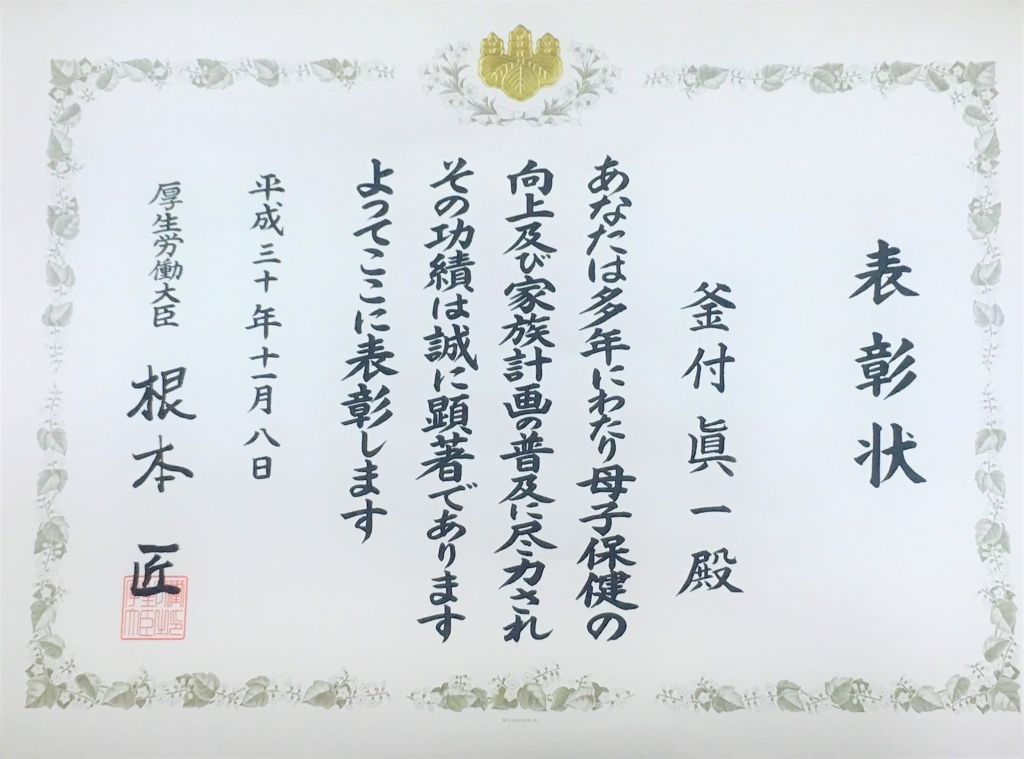 表彰状
釜付眞一殿
あなたは多年にわたり母子保健の
向上及び家族計画の普及に尽力され
その功績は誠に顕著であります
よってここに表彰します
平成三十年十一月八日
厚生労働大臣 根本匠